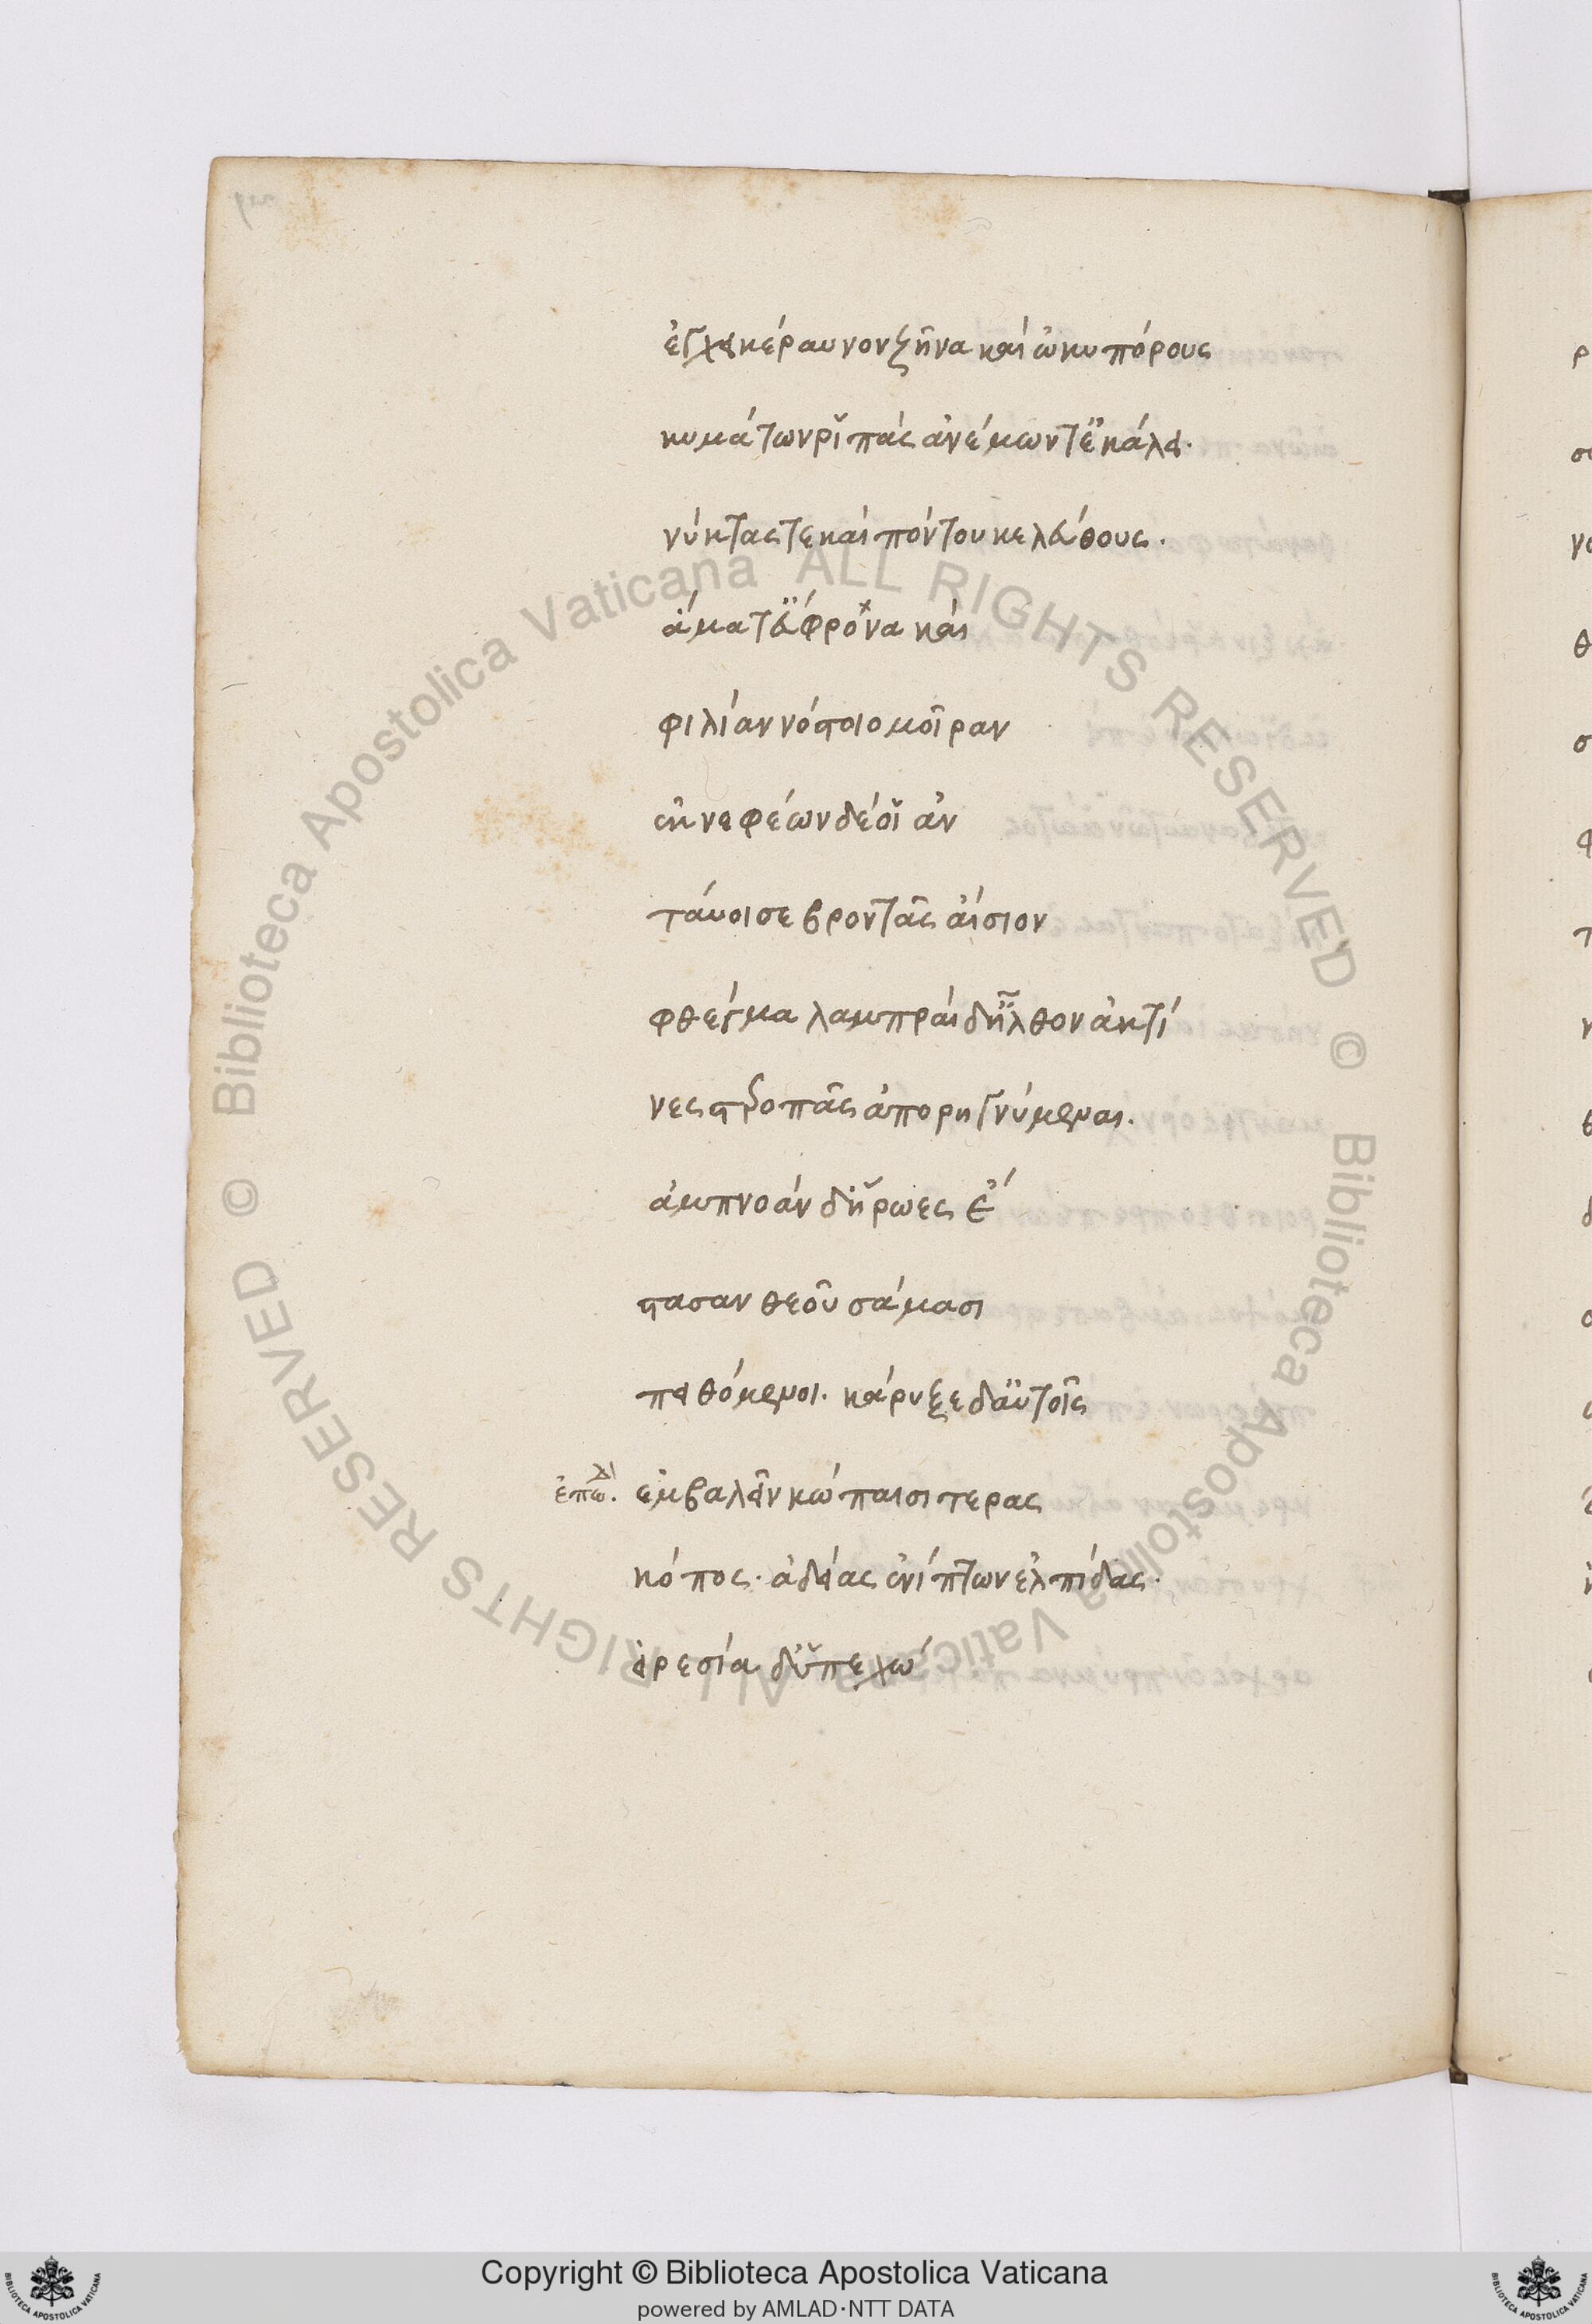 ἐγχεικέραυνον ζῆνα καὶ ὠκυπόρους
κυμάτων ῥιπὰς ἀνέμων τ' ἐκάλει.
νύκτας τε καὶ πόντου κελεύθους.
ἄματά τ' εὔφρονα καὶ
φιλίαν νόστοιο μοῖραν
ἐκ νεφέων δέ οἱ ἀν
τάυσε βροντᾶς αἴσιον
φθέγμα λαμπραὶ δ' ἦλθον ἀκτί
νες στεροπᾶς ἀπορηγνύμεναι.
ἀμπνοὰν δ' ἥρωες ἔ
στασαν θεοῦ σάμασι
πειθόμενοι. κάρυξε δ' αὐτοῖς
ἐπῳδ. ἐμβαλεῖν κώπαισι τερας
κόπος. ἁδείας ἐνίπτων ἐλπίδας.
εἰρεσία δ' ὑπεχώ
Biblioteca Apostolica Vaticana ALL RIGHTS RESERVED ©
Biblioteca Apostolica Vaticana ALL RIGHTS RESERVED ©
Copyright © Biblioteca Apostolica Vaticana
powered by AMLAD·NTT DATA
BIBLIOTECA APOSTOLICA VATICANA
BIBLIOTECA APOSTOLICA VATICANA